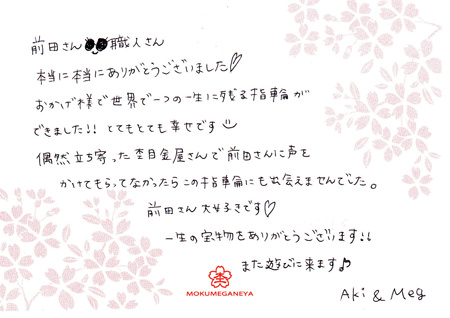 前田さん 職人さん
本当に本当にありがとうございました♡
おかげ様で世界で一つの一生に残る指輪が
できました!! とてもとても幸せです
偶然立ち寄った杢目金屋さんで前田さんに声を
かけてもらってなかったらこの指輪にも出会えませんでした。
前田さん大好きです♡
一生の宝物をありがとうございます!!
また遊びに来ます♪
MOKUMEGANEYA
Aki & Meg